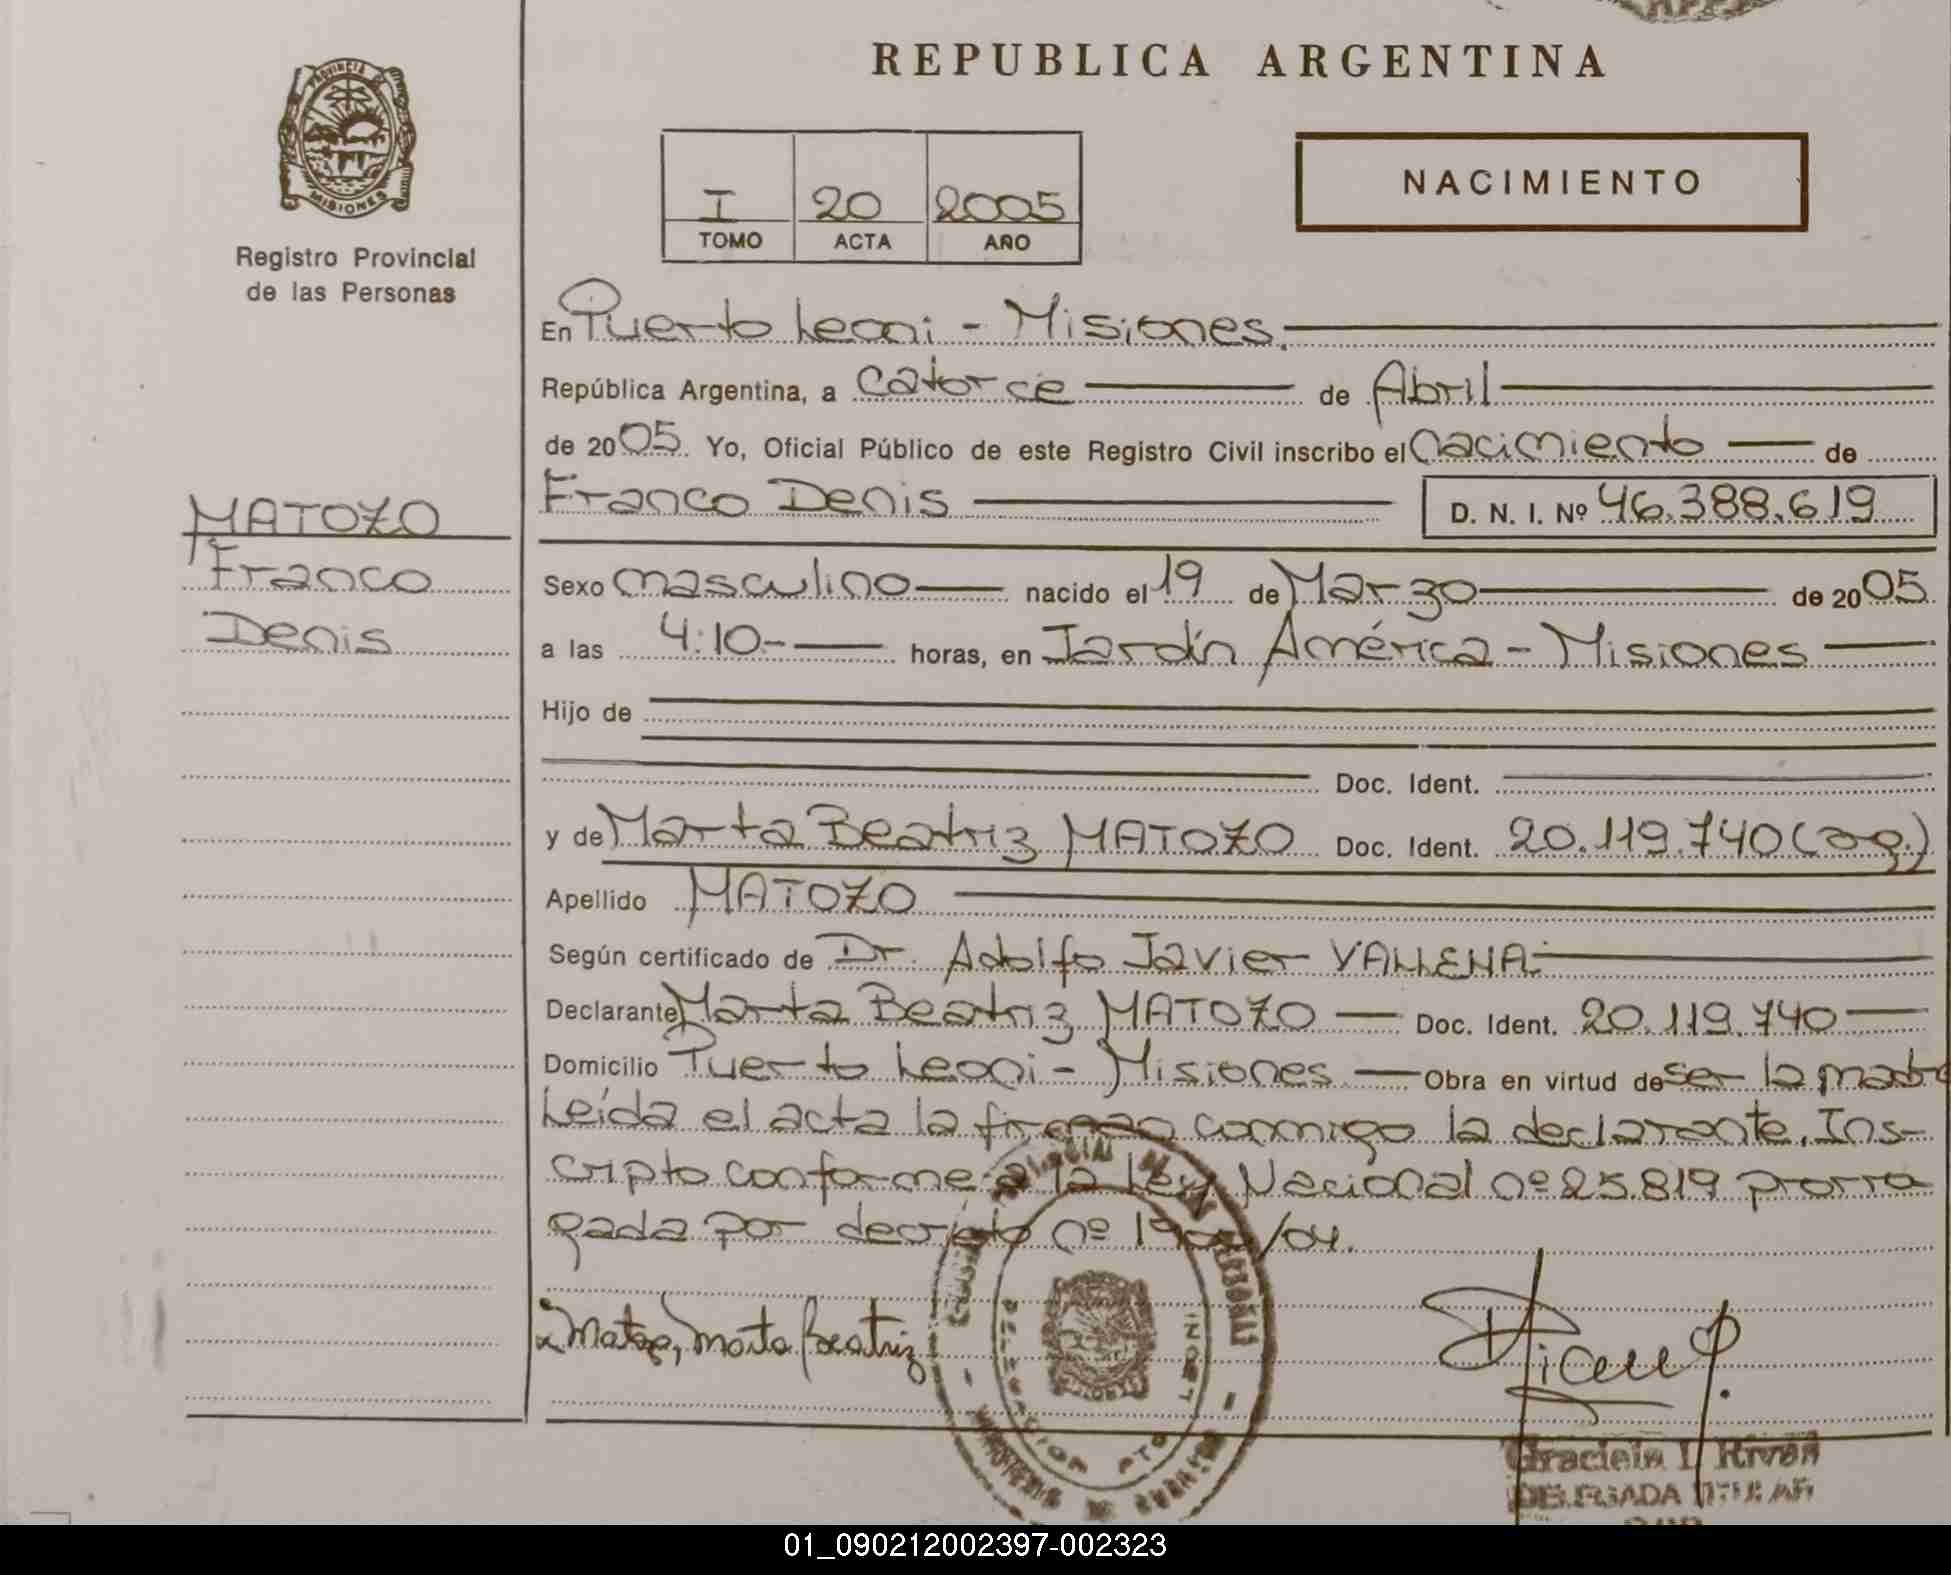 REPUBLICA ARGENTINA
PROVINCIA DE
MISIONES
Registro Provincial
de las Personas
I 20 2005
TOMO ACTA AÑO
NACIMIENTO
MATOZO
Franco
Denis
En Puerto Leoni - Misiones.
República Argentina, a catorce de Abril
de 2005. Yo, Oficial Público de este Registro Civil inscribo el nacimiento de
Franco Denis D. N. I. Nº 46.388.619
Sexo masculino nacido el 19 de Marzo de 2005
a las 4:10.- horas, en Jardín América - Misiones
Hijo de
Doc. Ident.
y de Marta Beatriz MATOZO Doc. Ident. 20.119.740 (arg.)
Apellido MATOZO
Según certificado de Dr. Adolfo Javier
Declarante Marta Beatriz MATOZO Doc. Ident. 20.119.740
Domicilio Puerto Leoni - Misiones Obra en virtud de ser la madre
Leída el acta la firman conmigo la declarante. Ins-
cripto conforme a la Ley Nacional nº 25.819 prorro
gada por decreto nº /04.
Matozo, Marta Beatriz
DELEGACION PTO
Graciela I. Rivas
DELEGADA TITULAR
01_090212002397-002323